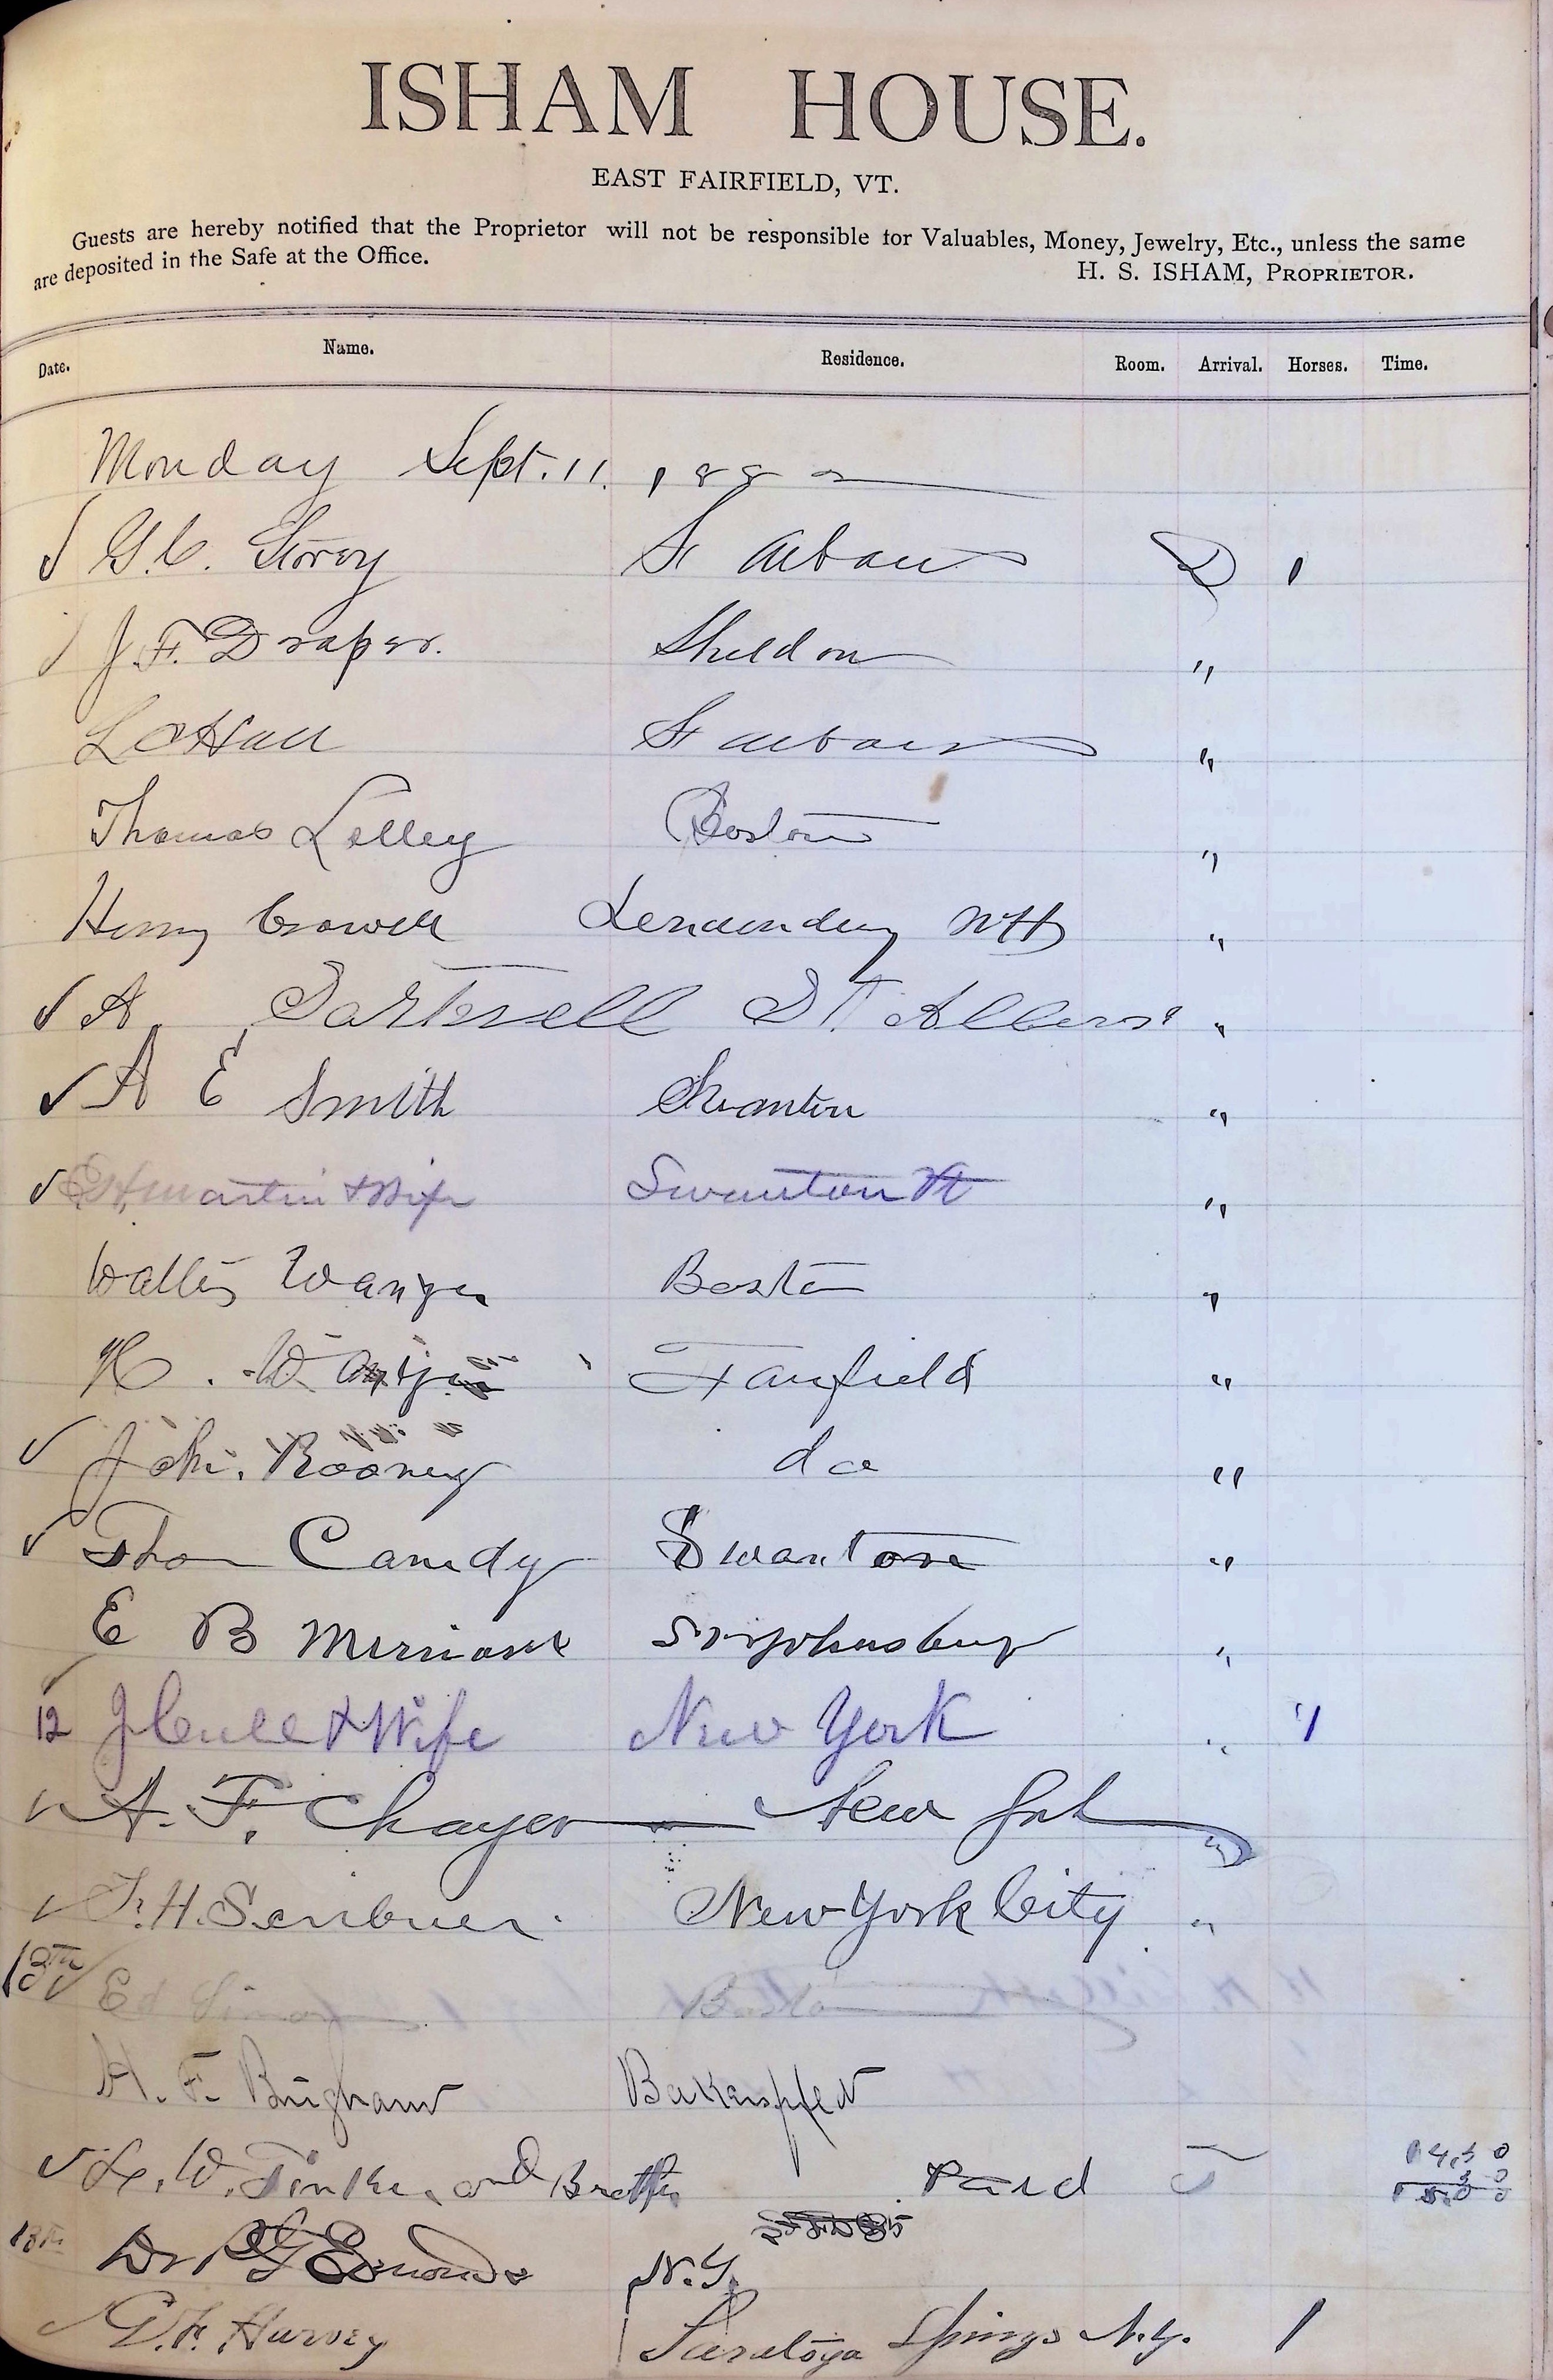 ISHAM HOUSE.
EAST FAIRFIELD, VT.
Guests are hereby notified that the Proprietor will not be responsible for Valuables, Money, Jewelry, Etc., unless the same
are deposited in the Safe at the Office.
H. S. ISHAM, PROPRIETOR.
Date. Name. Residence. Room. Arrival. Horses. Time.
Monday Sept. 11. 1882
G. C. Story St Albans D 1
J. F. Draper. Sheldon "
L C Hall St Albans "
Thomas Lelley Boston "
Henry Crowell NH "
A. St. Albans "
A E Smith Swanton "
Martin & Wife Swanton Vt "
Boston "
H. W Fairfield "
John. Rooney do "
Thos Canedy Swanton "
E B Merriam St Johnsbury "
12 J & Wife New York " 1
A. F. Chayer New York "
F. H. Scribner. New York City "
13th Ed Boston
H. F. Brigham Bakersfield
L. W. Tinker and Brother Paid
18th Dr N. Y.
G. F. Harvey Saratoga Springs N. Y. 1